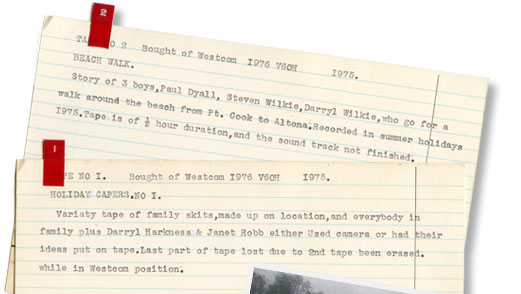 2
TAPE NO 2 Bought of Westcom I976 V6OH 1975.
BEACH WALK.
Story of 3 boys,Paul Dyall, Steven Wilkie,Darryl Wilkie,who go for a
walk around the beach from Pt. Cook to Altona.Recorded in summer holidays
1975.Tape is of ½ hour duration,and the sound track not finished.
1
TAPE NO I. Bought of Westcom I976 V6OH 1975.
HOLIDAY CAPERS.NO I.
Variaty tape of family skits,made up on location,and everybody in
family plus Darryl Harkness & Janet Robb either Used camera or had their
ideas put on tape.Last part of tape lost due to 2nd tape been erased.
while in Westcom position.